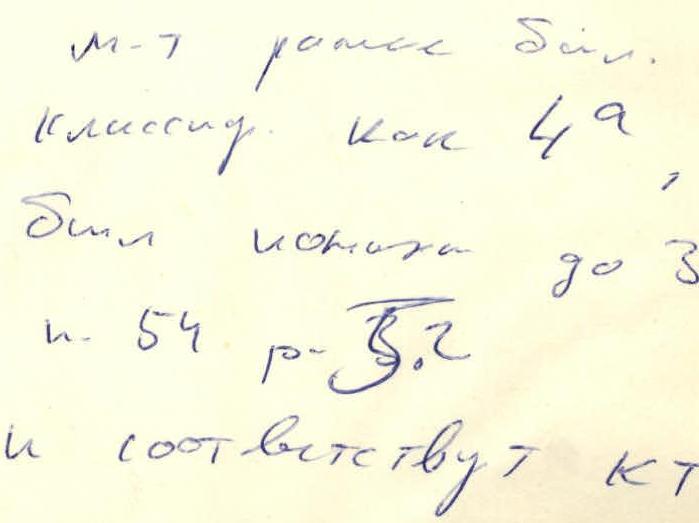 м-т ранее был.
классиф. как 4а,
был до 3
п. 54 р-
и соответствут КТ